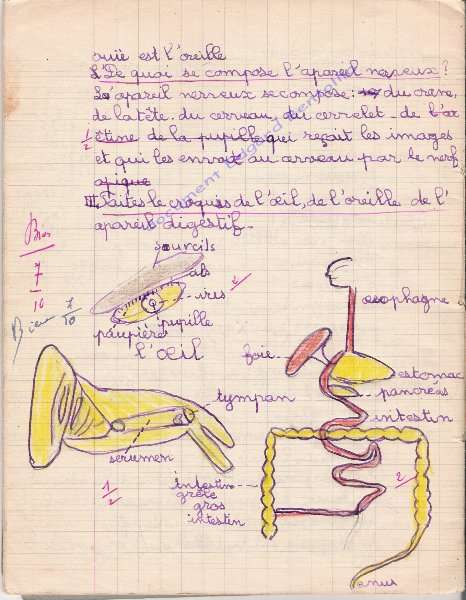 ouïe est l'oreille
I. De quoi se compose l'apareil nerveux?
L'apareil nerveux se compose: du crâne,
de la tête. du cerveau du cervelet. de la
de la pupille qui reçoit les images
et qui les envoit au cerveau par le nerf
III. Faites le croquis de l'œil, de l'oreille de l'
apareil digestif.
sourcils
cils
iris
pupille
paupière
l'œil
2
1/2
Bien
7
10
Bien 7/10
œsophagne
foie
estomac
pancréas
intestin
tympan
serumen
1/2
intestin
grêle
gros
intestin
2
anus